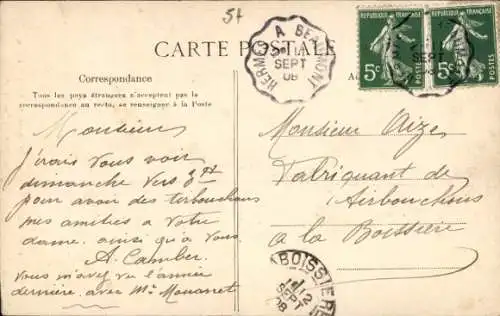 57
CARTE POSTALE
Correspondance
Tous les pays étrangers n'acceptent pas la
correspondance au recto, se renseigner à la Poste
HERMES A BEAUMONT
SEPT
08
REPUBLIQUE FRANÇAISE
5c
POSTES
REPUBLIQUE FRANÇAISE
5c
POSTES
SEPT
Monsieur
J'irais vous voir
dimanche vers 3h
pour avoir des tirbouchons
mes amitiés a votre
dame. ainsi qu'a vous
A. Camber
vous m'avez vu l'année
dernière. avec Mr Mouarret
Monsieur Aize
Fabriquant de
Tirbouchons
a la Boissière
LABOISSIERE
12
SEPT
08